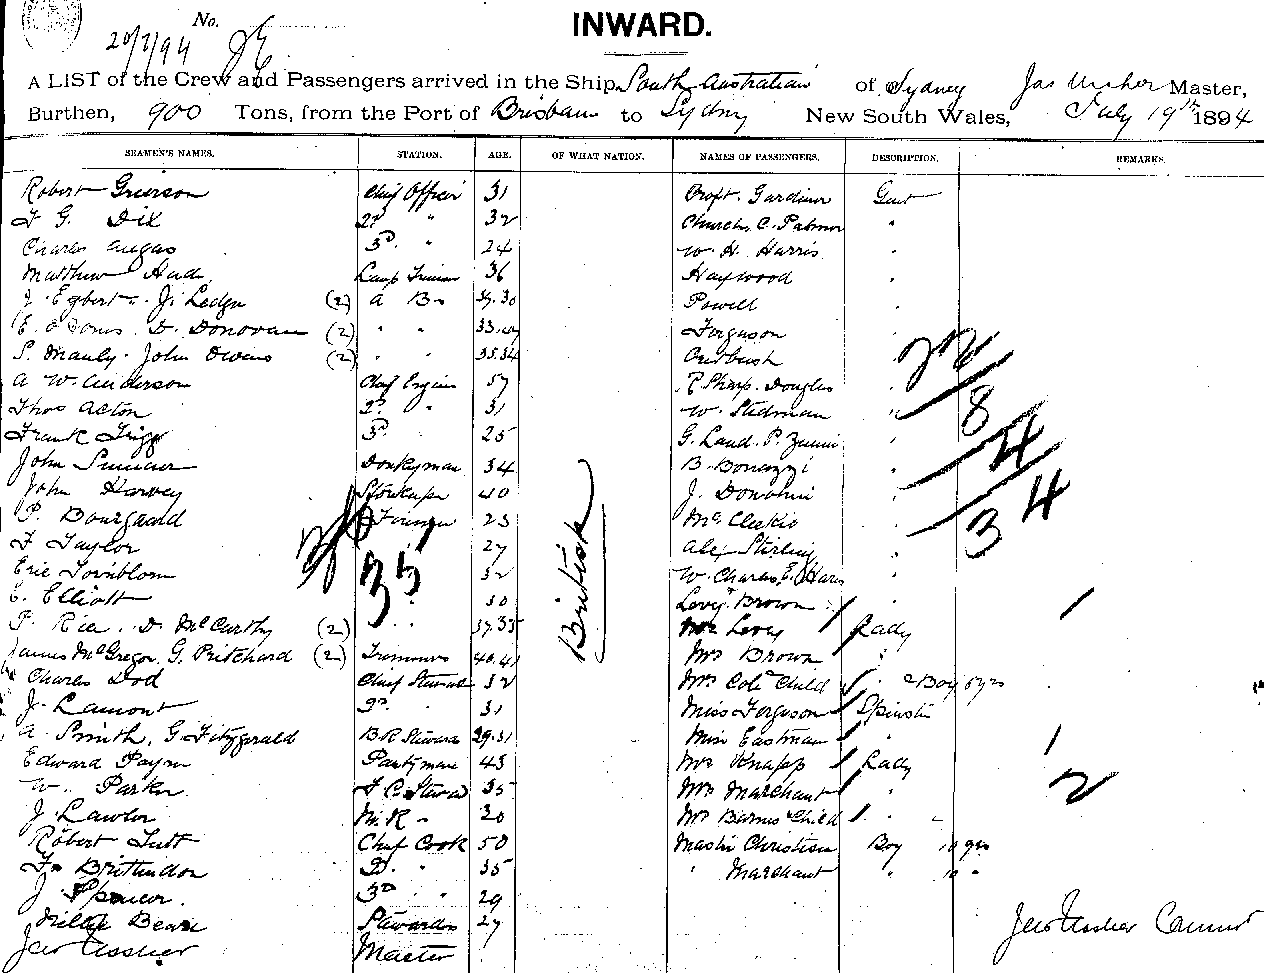 No.
20/7/94
INWARD.
A LIST of the Crew and Passengers arrived in the Ship South Australian of Sydney Jas Ussher Master,
Burthen, 900 Tons, from the Port of Brisbane to Sydney New South Wales, July 19th 1894
SEAMEN'S NAMES. STATION. AGE. OF WHAT NATION. NAMES OF PASSENGERS. DESCRIPTION. REMARKS.
Robert Grierson Chief Officer 31 Croft. Gardiner Gent
F G. Dix 2d " 32 Church, C. Palmer "
Charles Angas 3d. " 24 W. H. Harris "
Matthew Lamp Trimmer 36 Haywood "
J. Egbert. J. Ledger (2) A B. 39.30 Powell "
D. Donovan (2) " " 33. Ferguson "
S. Manly. John Owens (2) " " 35.34 "
A W. Anderson Chief Engine 57 R. Sharp. Douglas "
Thos Acton 2d " 31 W. Stedman "
Frank Trigg 3d " 25 G. Land. P. "
John Donkyman 34 B. Bonazzi "
John Harvey Storekeeper 40 J. Donohue "
P. Bourgaard 23 McCleckie "
F Taylor 27 Alex Stirling "
Eric Tornblom 32 W. Charles, E.
E. Elliott 30 Levy. Brown
P. Rice. D. McCarthy (2) 37.35 Mrs Levy Lady
James McGregor. G. Pritchard (2) Trimmers 40.41 Mrs Brown "
Charles Dod Chief Steward 32 Mrs Cole Child " Boy 5 yrs
J. Lamont 2d " 31 Miss Ferguson Spinster
A. Smith, G. Fitzgerald B.R Steward 29.31 Miss Eastman "
Edward Payne Pantryman 43 Mrs Knapp Lady
W. Parker F C. Steward 35 Mrs Marchant "
J. Lawlor M.R " 20 Mrs Barnes & Child " "
Robert Tutt Chief Cook 50 Master Christian Boy 10 yrs
F. Brittindon 2d. " 35 " Marchant " 10 "
J. Spencer. 3d " 29
Bears Stewardess 27
Jas Ussher Master
British
22
8
4
34
35
1
1
2
Jas Ussher